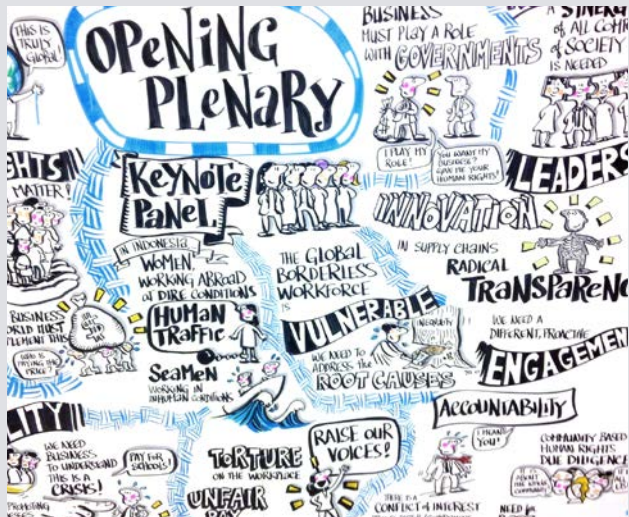 THIS IS
TRULY
GLOBAL!
OPENING
PLENARY
BUSINESS
MUST PLAY A ROLE
WITH GOVERNMENTS
A SYNERG
of ALL COM
of SOCIETY
IS NEEDED
I PLAY MY
ROLE!
YOU WANT MY
BUSINESS?
GIVE ME YOUR
HUMAN RIGHTS!
GHTS
MATTER!
KEYNOTE
PANEL
LEADERS
INNOVATION
IN SUPPLY CHAINS
RADICAL
TRANSPARENC
IN INDONESIA,
WOMEN,
WORKING ABROAD
at DIRE CONDITIONS
HUMAN
TRAFFIC
SEAMEN
WORKING IN
INHUMAN CONDITIONS
THE GLOBAL
BORDERLESS
WORKFORCE
IS
VULNERABLE
INEQUALITY
WE NEED TO
ADDRESS the
ROOT CAUSES
WE NEED A
DIFFERENT, PROACTIVE
ENGAGEMEN
BUSINESS
ORLD MUST
LEMENT THIS
WHO IS
PAYING THE
PRICE?
ACCOUNTABILITY
LITY
WE NEED
BUSINESS
TO UNDERSTAND
THIS IS A
CRISIS!
PAY FOR
SCHOOLS!
TORTURE
ON THE WORKPLACE
UNFAIR
PAY
RAISE OUR
VOICES!
I MEAN
YOU!
THERE IS A
CONFLICT of INTEREST
COMMUNITY BASED
HUMAN RIGHTS
DUE DILIGENCE
IT IS
ABOUT
NEED for
PROMOTING